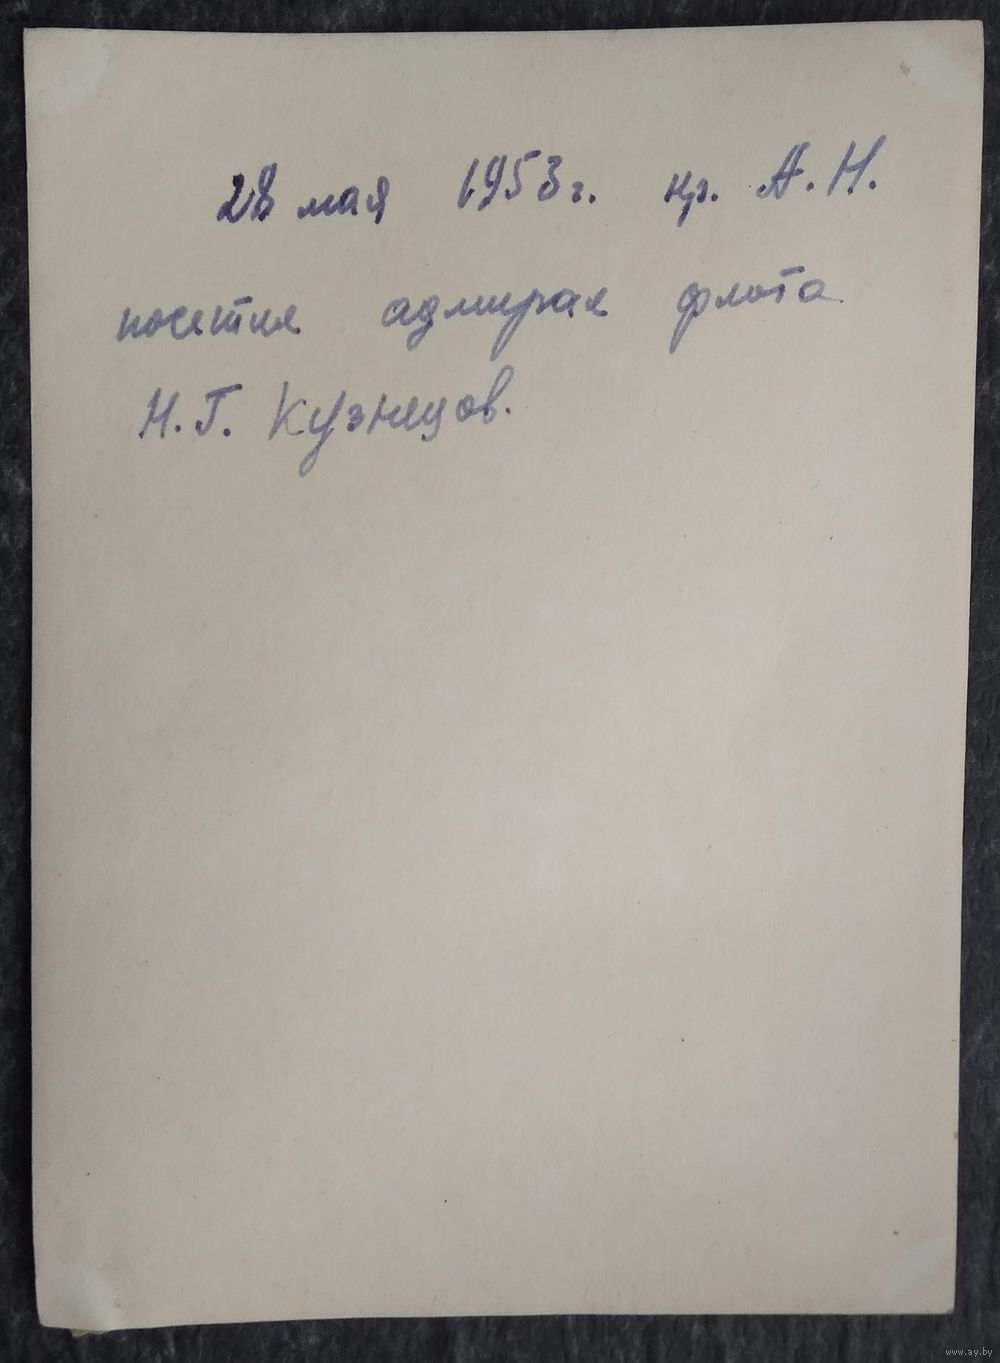 28 мая 1953 г. кр. А.Н.
посетил адмирал флота
Н.Г. Кузнецов.
www.ay.by